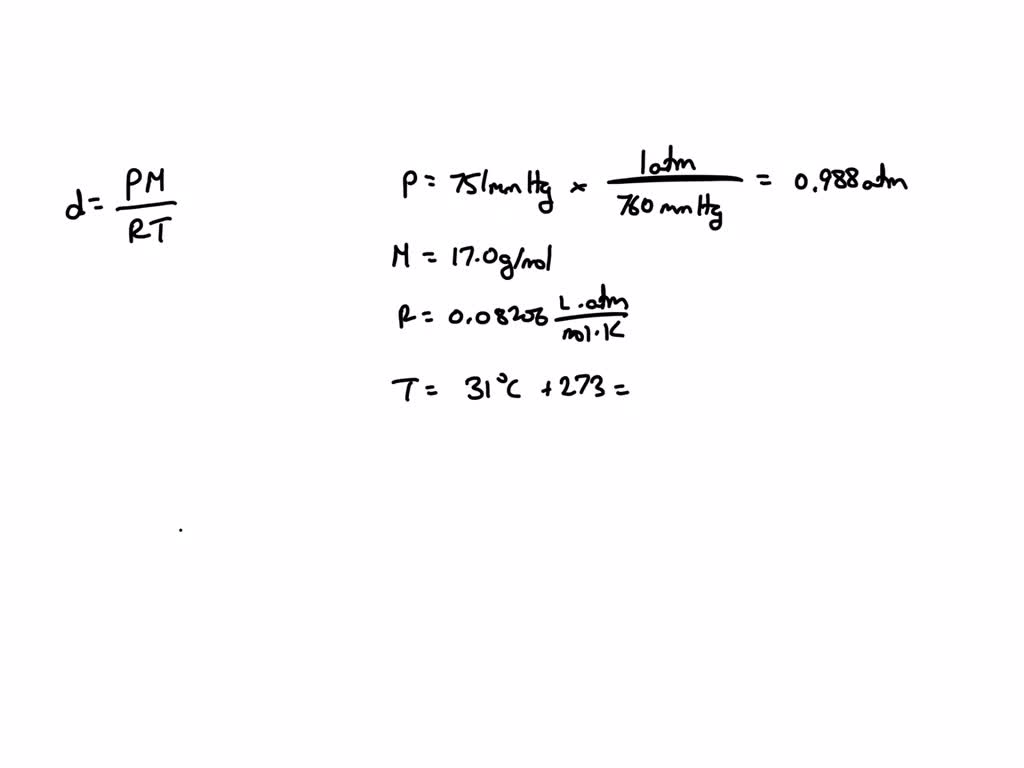 d = PM / RT
P = 751 mm Hg × 1 atm / 760 mm Hg = 0.988 atm
M = 17.0 g/mol
R = 0.08206 L·atm / mol·K
T = 31°C + 273 =